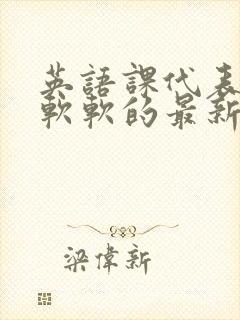 英語課代表
軟軟的最新
梁偉新